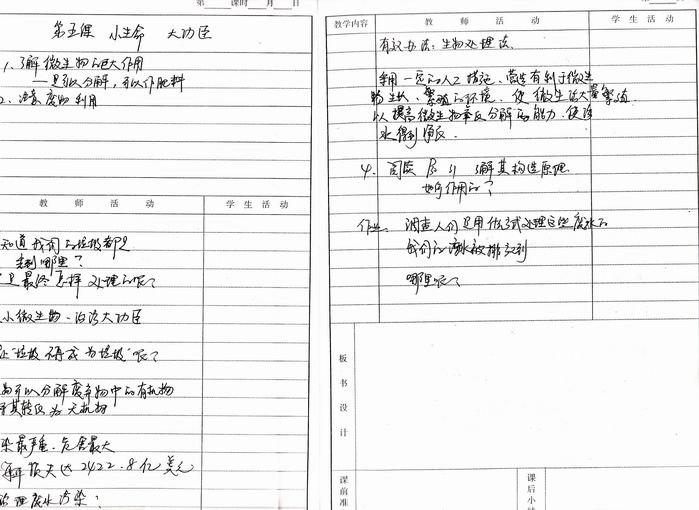 第 课时 月 日
第五课 小生命 大功臣
1、了解微生物的巨大作用
——是可以分解,可以作肥料
2、注意废物利用
教 师 活 动 学 生 活 动
知道我们的垃圾都是
去到哪里?
是最终怎样处理的呢?
小微生物、治污大功臣
让"垃圾不再成为垃圾"呢?
可以分解废弃物中的有机物
其转化为无机物
染最严重、危害最大
损失达2422.8亿美元
治理废水污染:
教学内容 教 师 活 动 学 生 活 动
有效办法:生物处理法
利用一定的人工措施,营造有利于微生
物生长、繁殖的环境,使微生物大量繁殖
以提高微生物 分解的能力,使污
水得到净化
4. 阅读 了解其构造原理
如何作用的?
作业: 调查人们是用什么方式处理这些废水的
我们的废水被排放到
哪里呢?
板书设计
课前准
课后小